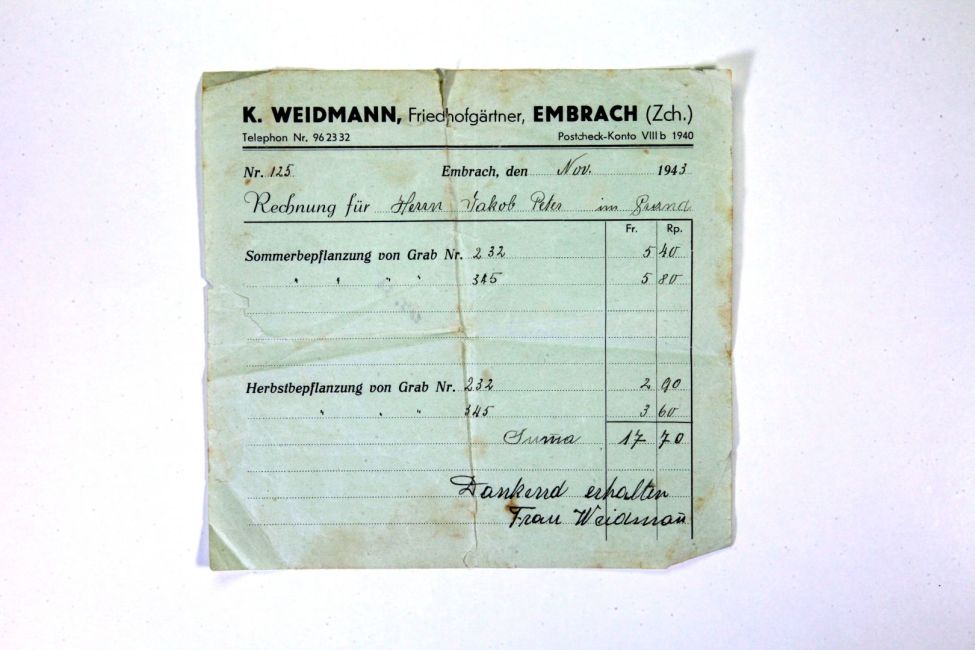 K. WEIDMANN, Friedhofgärtner, EMBRACH (Zch.)
Telephon Nr. 96 23 32 Postcheck-Konto VIII b 1940
Nr. 125 Embrach, den Nov. 1943
Rechnung für Herrn Jakob Peter im Grund
Fr. Rp.
Sommerbepflanzung von Grab Nr. 232 5 40
" " " " 345 5 80
Herbstbepflanzung von Grab Nr. 232 2 90
" " " 345 3 60
Suma 17 70
Dankend erhalten
Frau Weidmañ